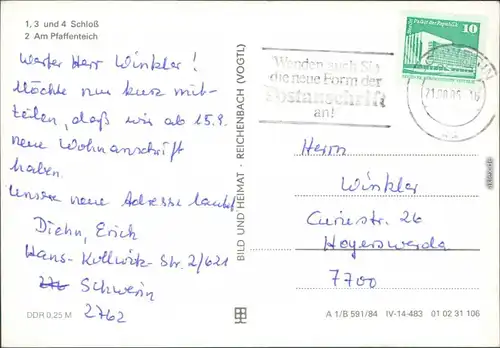 1, 3 und 4 Schloß
2 Am Pfaffenteich
Werter Herr Winkler!
Möchte nur kurz mit-
teilen, daß wir ab 15.9.
neue Wohnanschrift
haben.
Unsere neue Adresse lautet
Diehn, Erich
Hans-Kollwitz-Str. 2/621
Schwerin
2762
DDR 0,25 M
BILD UND HEIMAT · REICHENBACH (VOGTL)
Palast der Republik
10
Wenden auch Sie
die neue Form der
Postanschrift
an!
Herrn
Winkler
Curiestr. 26
Hoyerswerda
7700
A 1/B 591/84 IV-14-483 01 02 31 106